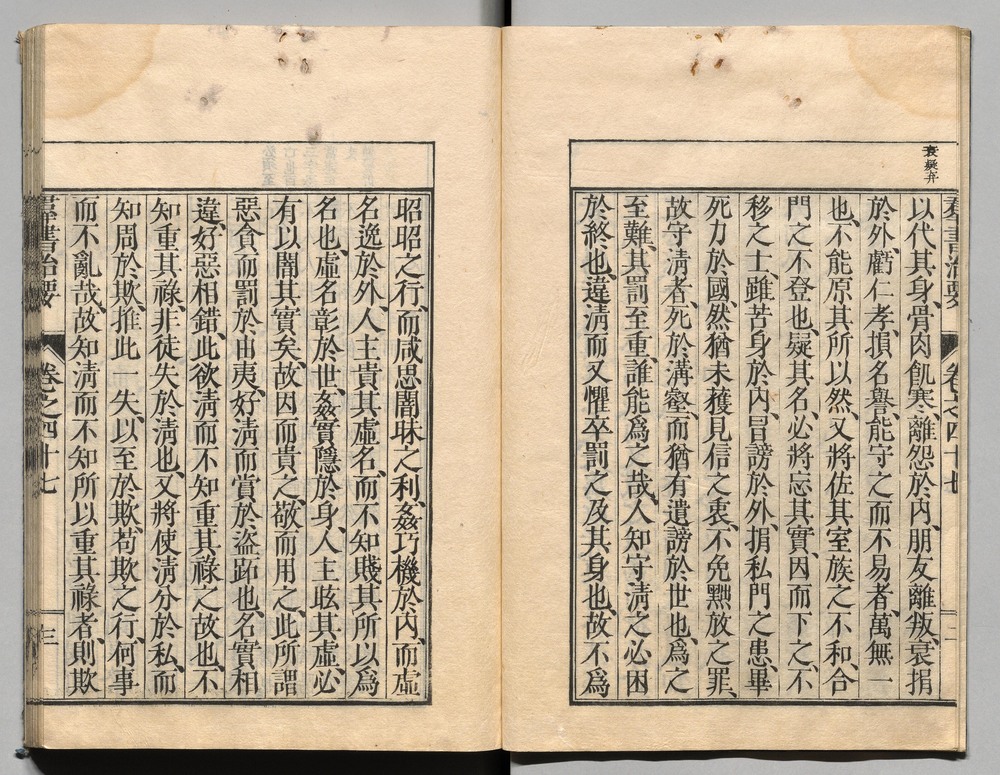 衰疑弃
羣書治要 卷之四十七 二
以代其身、骨肉飢寒、離怨於內、朋友離叛、衰捐
於外、虧仁孝、損名譽、能守之而不易者、萬無一
也、不能原其所以然、又將佐其室族之不和、合
門之不登也、疑其名、必將忘其實、因而下之、不
移之士、雖苦身於內、冒謗於外、捐私門之患、畢
死力於國、然猶未獲見信之衷、不免黜放之罪、
故守淸者、死於溝壑、而猶有遺謗於世也、爲之
至難、其罰至重、誰能爲之哉、人知守淸之必困
於終也、違淸而又懼卒罰之及其身也、故不爲
昭昭之行、而咸思闇昧之利、姦巧機於內、而虛
名逸於外、人主貴其虛名、而不知賤其所以爲
名也、虛名彰於世、姦實隱於身、人主眩其虛、必
有以闇其實矣、故因而貴之、敬而用之、此所謂
惡貪而罰於由夷、好淸而賞於盜跖也、名實相
違、好惡相錯、此欲淸而不知重其祿之故也、不
知重其祿、非徒失於淸也、又將使淸分於私、而
知周於欺、推此一失、以至於欺、苟欺之行、何事
而不亂哉、故知淸而不知所以重其祿者、則欺
羣書治要 卷之四十七 三